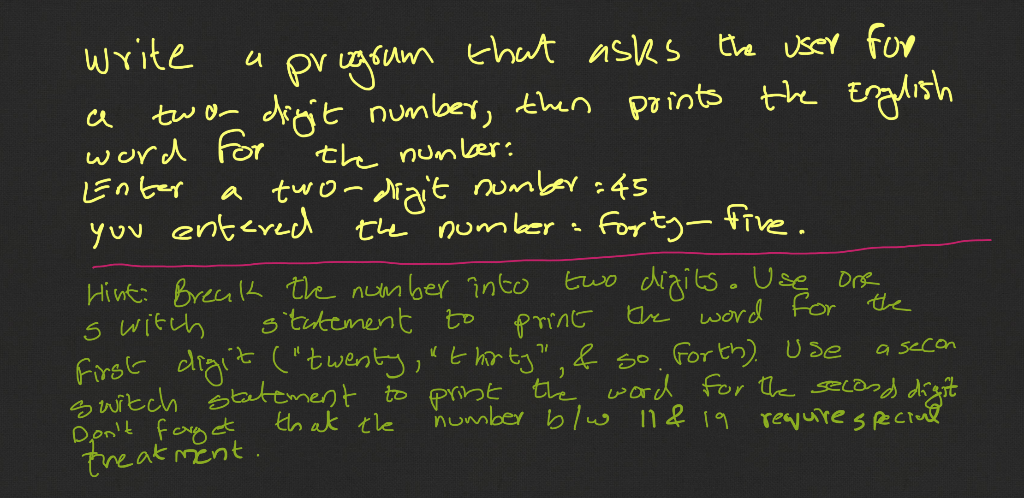 Write a program that asks the user for
a two-digit number, then prints the English
word for the number:
Enter a two-digit number : 45
you entered the number : forty-five.
Hint: Break the number into two digits. Use one
switch statement to print the word for the
first digit ("twenty," "thirty", & so forth). Use a secon
switch statement to print the word for the second digit
Don't forget that the number b/w 11 & 19 require special
treatment.